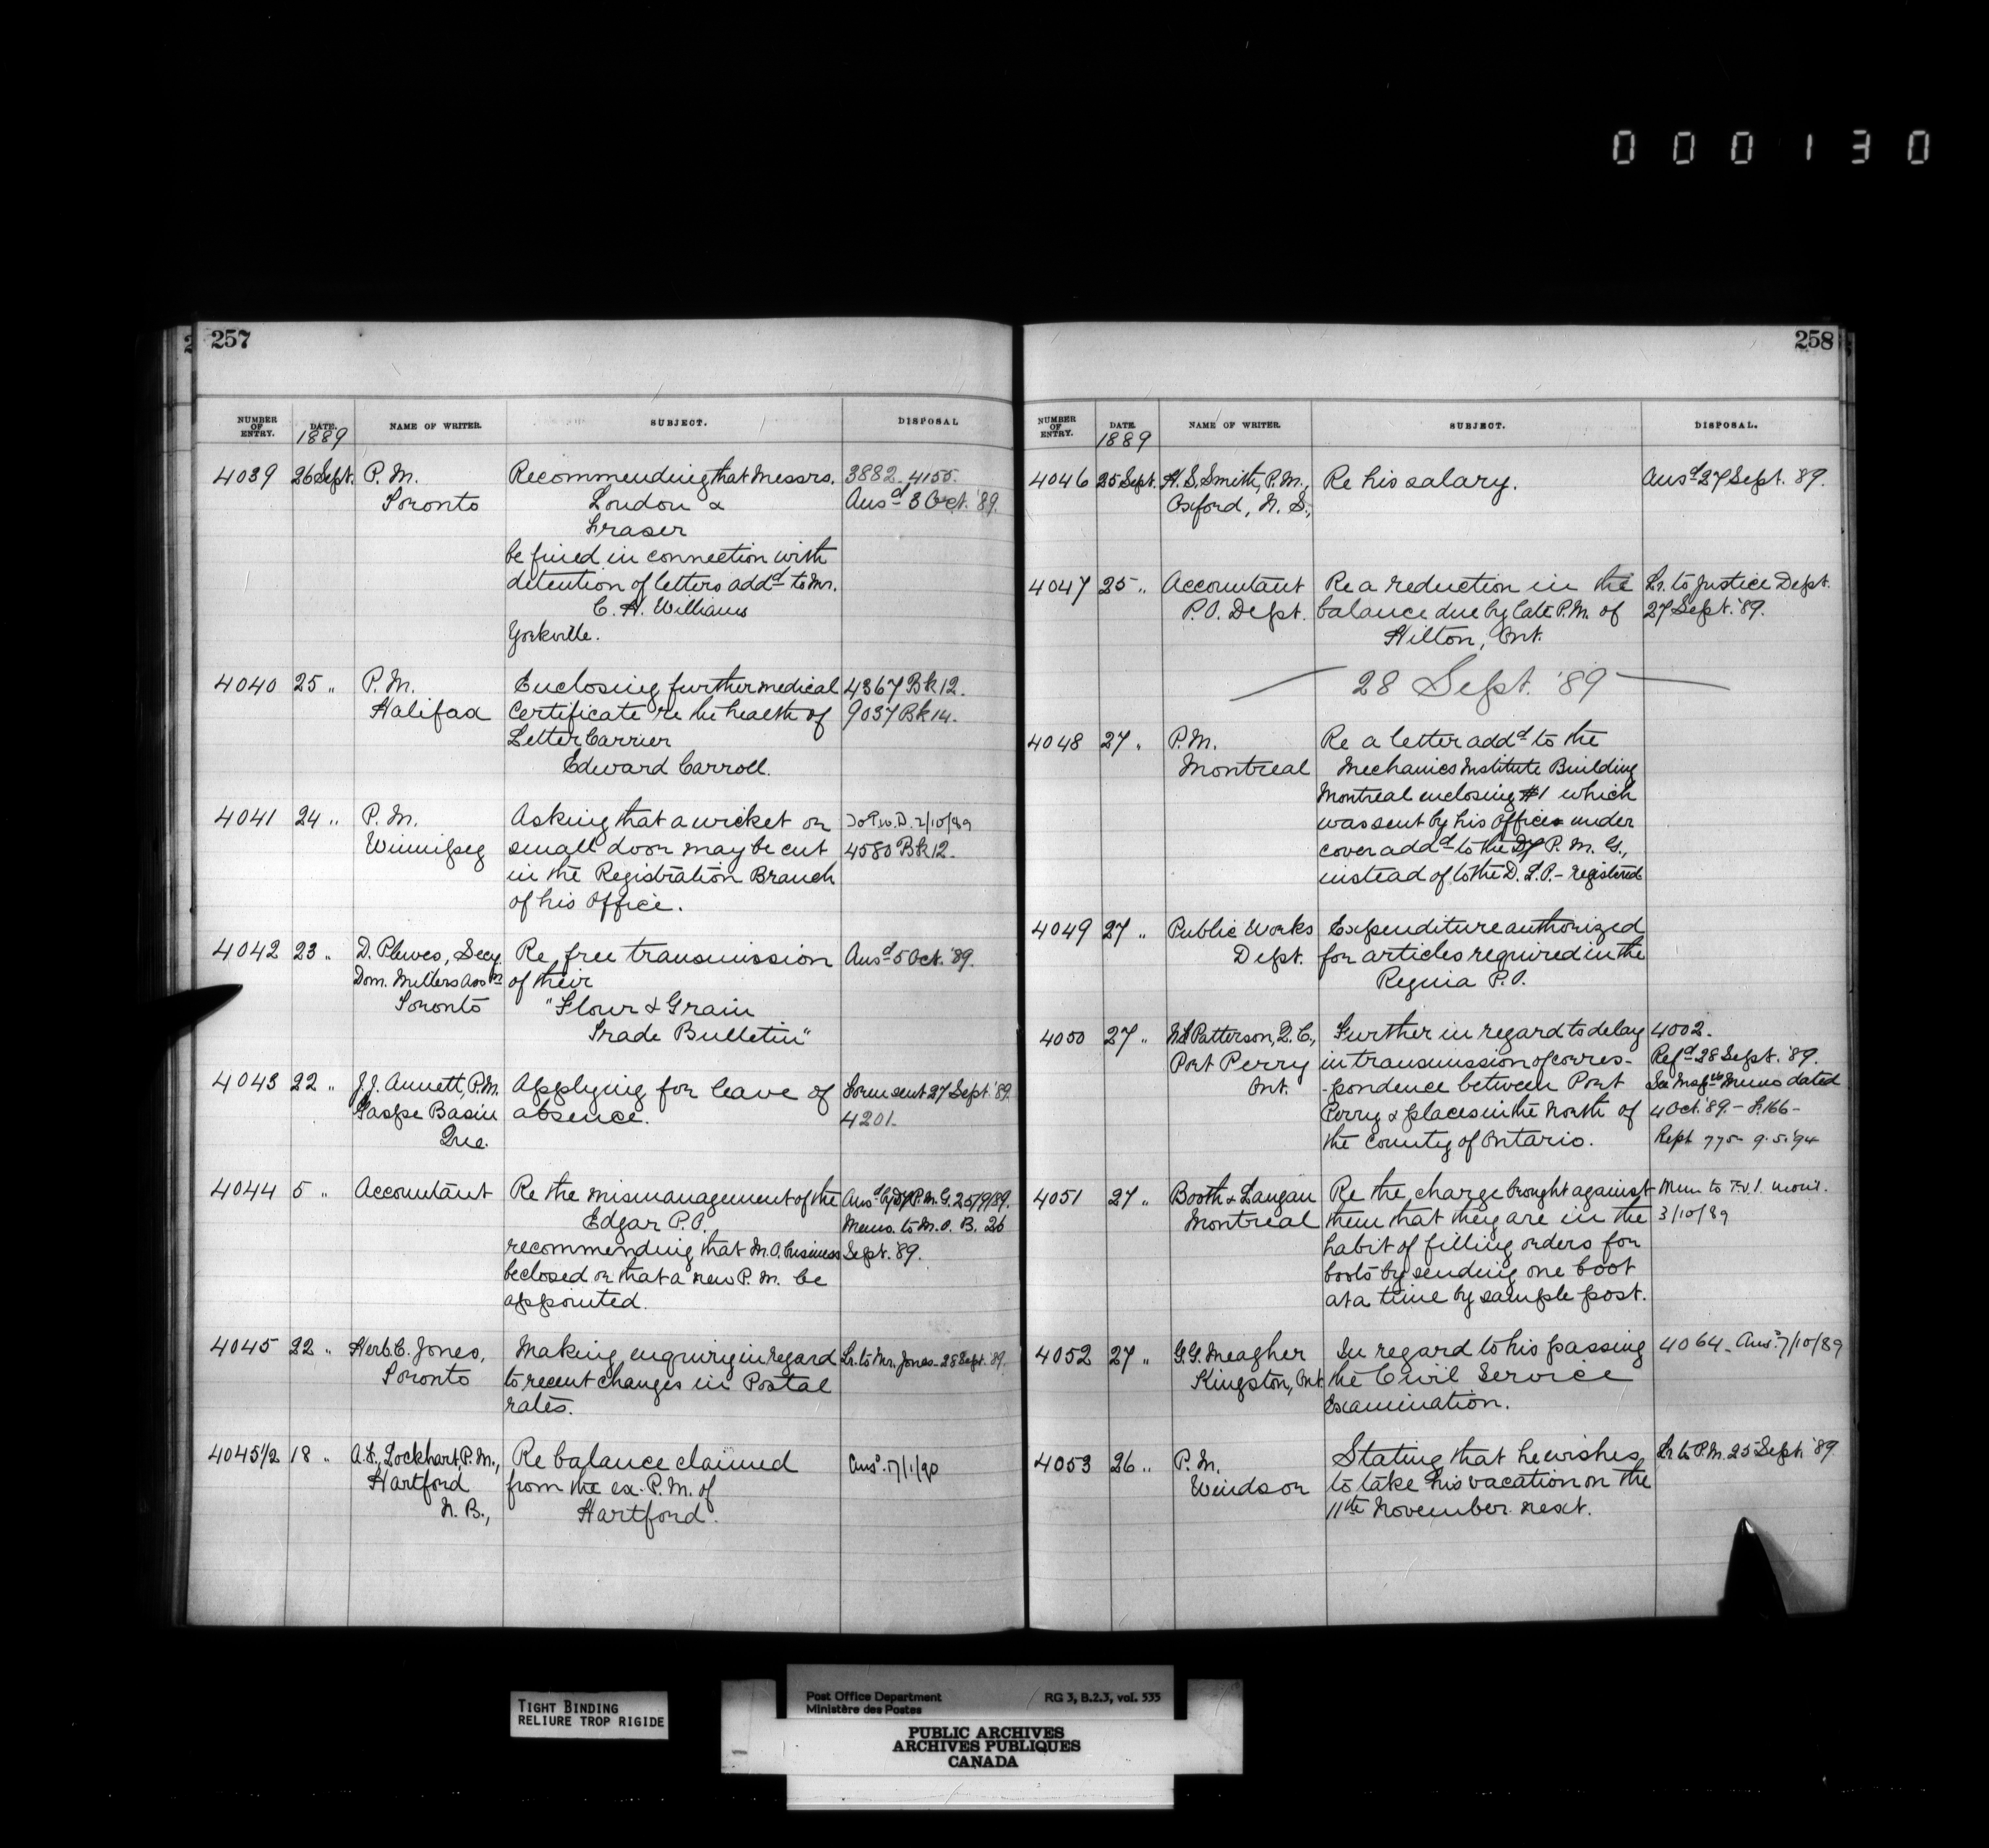 000130
257
NUMBER OF ENTRY. DATE. NAME OF WRITER. SUBJECT. DISPOSAL
1889
4039 26 Sept. P. M. Recommending that Messrs. 3882. 4155.
Toronto London & Ansd 3 Oct. '89.
Fraser
be fined in connection with
detention of letters addd to Mr.
C. H. Williams
Yorkville.
4040 25 " P. M. Enclosing further medical 4367 Bk 12.
Halifax Certificate re the health of 9037 Bk 14.
Letter Carrier
Edward Carroll.
4041 24 " P. M. To P.W.D. 2/10/89
Asking that a wicket or
Winnipeg small door may be cut 4580 Bk 12.
in the Registration Branch
of his Office.
4042 23 " D. Plewes, Secy. Re free transmission Ansd 5 Oct. '89.
Dom. Millers Assn of their
Toronto "Flour & Grain
Trade Bulletin"
4043 22 " J. J. Annett, P.M. Applying for leave of Form sent 27 Sept '89.
Gaspe Basin absence. 4201.
Que.
4044 5 " Accountant Re the mismanagement of the Ansd by Dy P. M. G. 25/9/89.
Edgar P.O. Memo. to M. O. B. 26
recommending that M.O. business Sept. '89.
be closed or that a new P. M. be
appointed.
4045 22 " Herb. C. Jones, Making enquiry in regard Lr. to Mr. Jones - 28 Sept. '89.
Toronto to recent changes in Postal
rates.
4045½ 18 " Lockhart, P.M., Re balance claimed Ansd. 17/1/90
Hartford from the ex-P. M. of
N. B., Hartford.
258
NUMBER OF ENTRY. DATE. NAME OF WRITER. SUBJECT. DISPOSAL.
1889
4046 25 Sept. H. S. Smith, P.M., Re his salary. Ansd 27 Sept. '89.
Oxford, N. S.,
4047 25 " Accountant Re a reduction in the Lr. to Justice Dept.
P.O. Dept. balance due by late P.M. of 27 Sept. '89.
Hilton, Ont.
28 Sept. '89
4048 27 " P. M. Re a letter addd to the
Montreal Mechanics Institute Building
Montreal enclosing #1 which
was sent by his Office under
cover addd to the Dy P. M. G.,
instead of to the D. L. O. - registered
4049 27 " Public Works Expenditure authorized
Dept. for articles required in the
Regina P.O.
4050 27 " Patterson, Q. C., Further in regard to delay 4002.
Port Perry in transmission of corres- Refd 28 Sept. '89.
Ont. -pondence between Port See Insprs Memo dated
Perry & places in the North of 4 Oct. '89. - F. 166 -
the County of Ontario. Rept 775 - 9.5.'94
4051 27 " Booth & Langan Re the charge brought against Mem to
Montreal them that they are in the 3/10/89
habit of filling orders for
boots by sending one boot
at a time by sample post.
4052 27 " G. G. Meagher In regard to his passing 4064. Ansd. 7/10/89
Kingston, Ont. the Civil Service
Examination.
4053 26 " P. M. Stating that he wishes Lr to P. M. 25 Sept. '89
Windsor to take his vacation on the
11th November next.
TIGHT BINDING
RELIURE TROP RIGIDE
Post Office Department RG 3, B.2.3, vol. 535
Ministère des Postes
PUBLIC ARCHIVES
ARCHIVES PUBLIQUES
CANADA